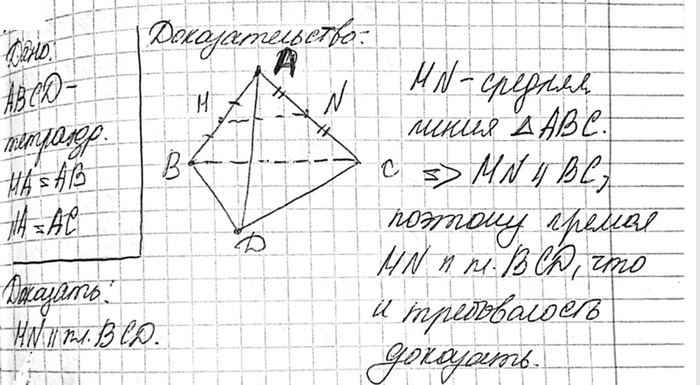 Дано:
ABCD-
тетраэдр.
MA = AB
NA = AC
Доказать:
MN || пл. BCD.
Доказательство:
A
M
N
B
C
D
MN - средняя
линия △ABC.
=> MN || BC,
поэтому прямая
MN || пл. BCD, что
и требовалость
доказать.